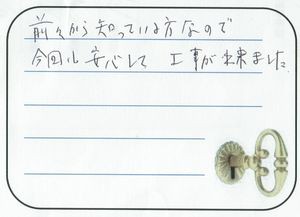 前々から知っている方なので
今回も安心して 工事が出来ました